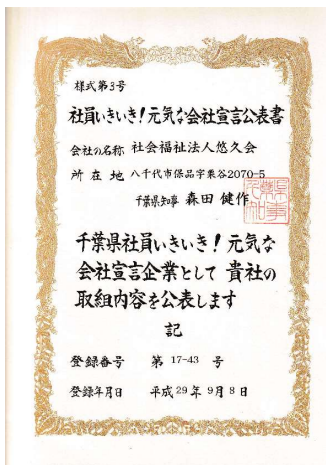 様式第3号
社員いきいき!元気な会社宣言公表書
会社の名称 社会福祉法人悠久会
所在地 八千代市保品字栗谷2070-5
千葉県知事 森田健作
千葉県社員いきいき!元気な
会社宣言企業として 貴社の
取組内容を公表します
記
登録番号 第 17-43 号
登録年月日 平成29年9月8日